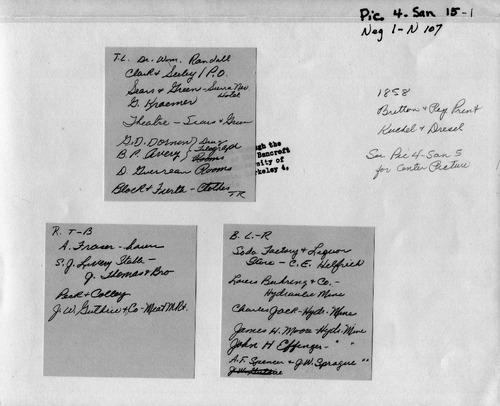 Pic. 4. San 15-1
Neg 1-N 107
T-L. Dr. Wm. Randall
Clark & Seeley / P.O.
Sears & Green - Sierra Nev
Hotel
G. Kraemer
Theatre - Sears & Green
G.D. Dornen
B.P. Avery
Telegraph
Rooms
D. Guereau Rooms
Block & Furth - Clothes
T-R
ugh the
Bancroft
rsity of
rkeley 4,
1858
Britton & Rey Print
Kuchel & Dresel
See Pic 4-San 5
for Center Picture
R. T-B
A. Fraser -
S.J. Livery Stable -
J. Thomas & Bro
Peck & Colley
J.W. Guthrie & Co - Meat Mkt.
B. L-R
Soda Factory & Liquor
Store - C.E. Helfrich
Louis Buhring & Co. -
Hydraulic Mine
Charles Jack - Hydr. Mine
James H. Moore Hydr. Mine
John H Effinger - " "
A.F. Spencer & J.W. Sprague " "
J.W. Guthrie